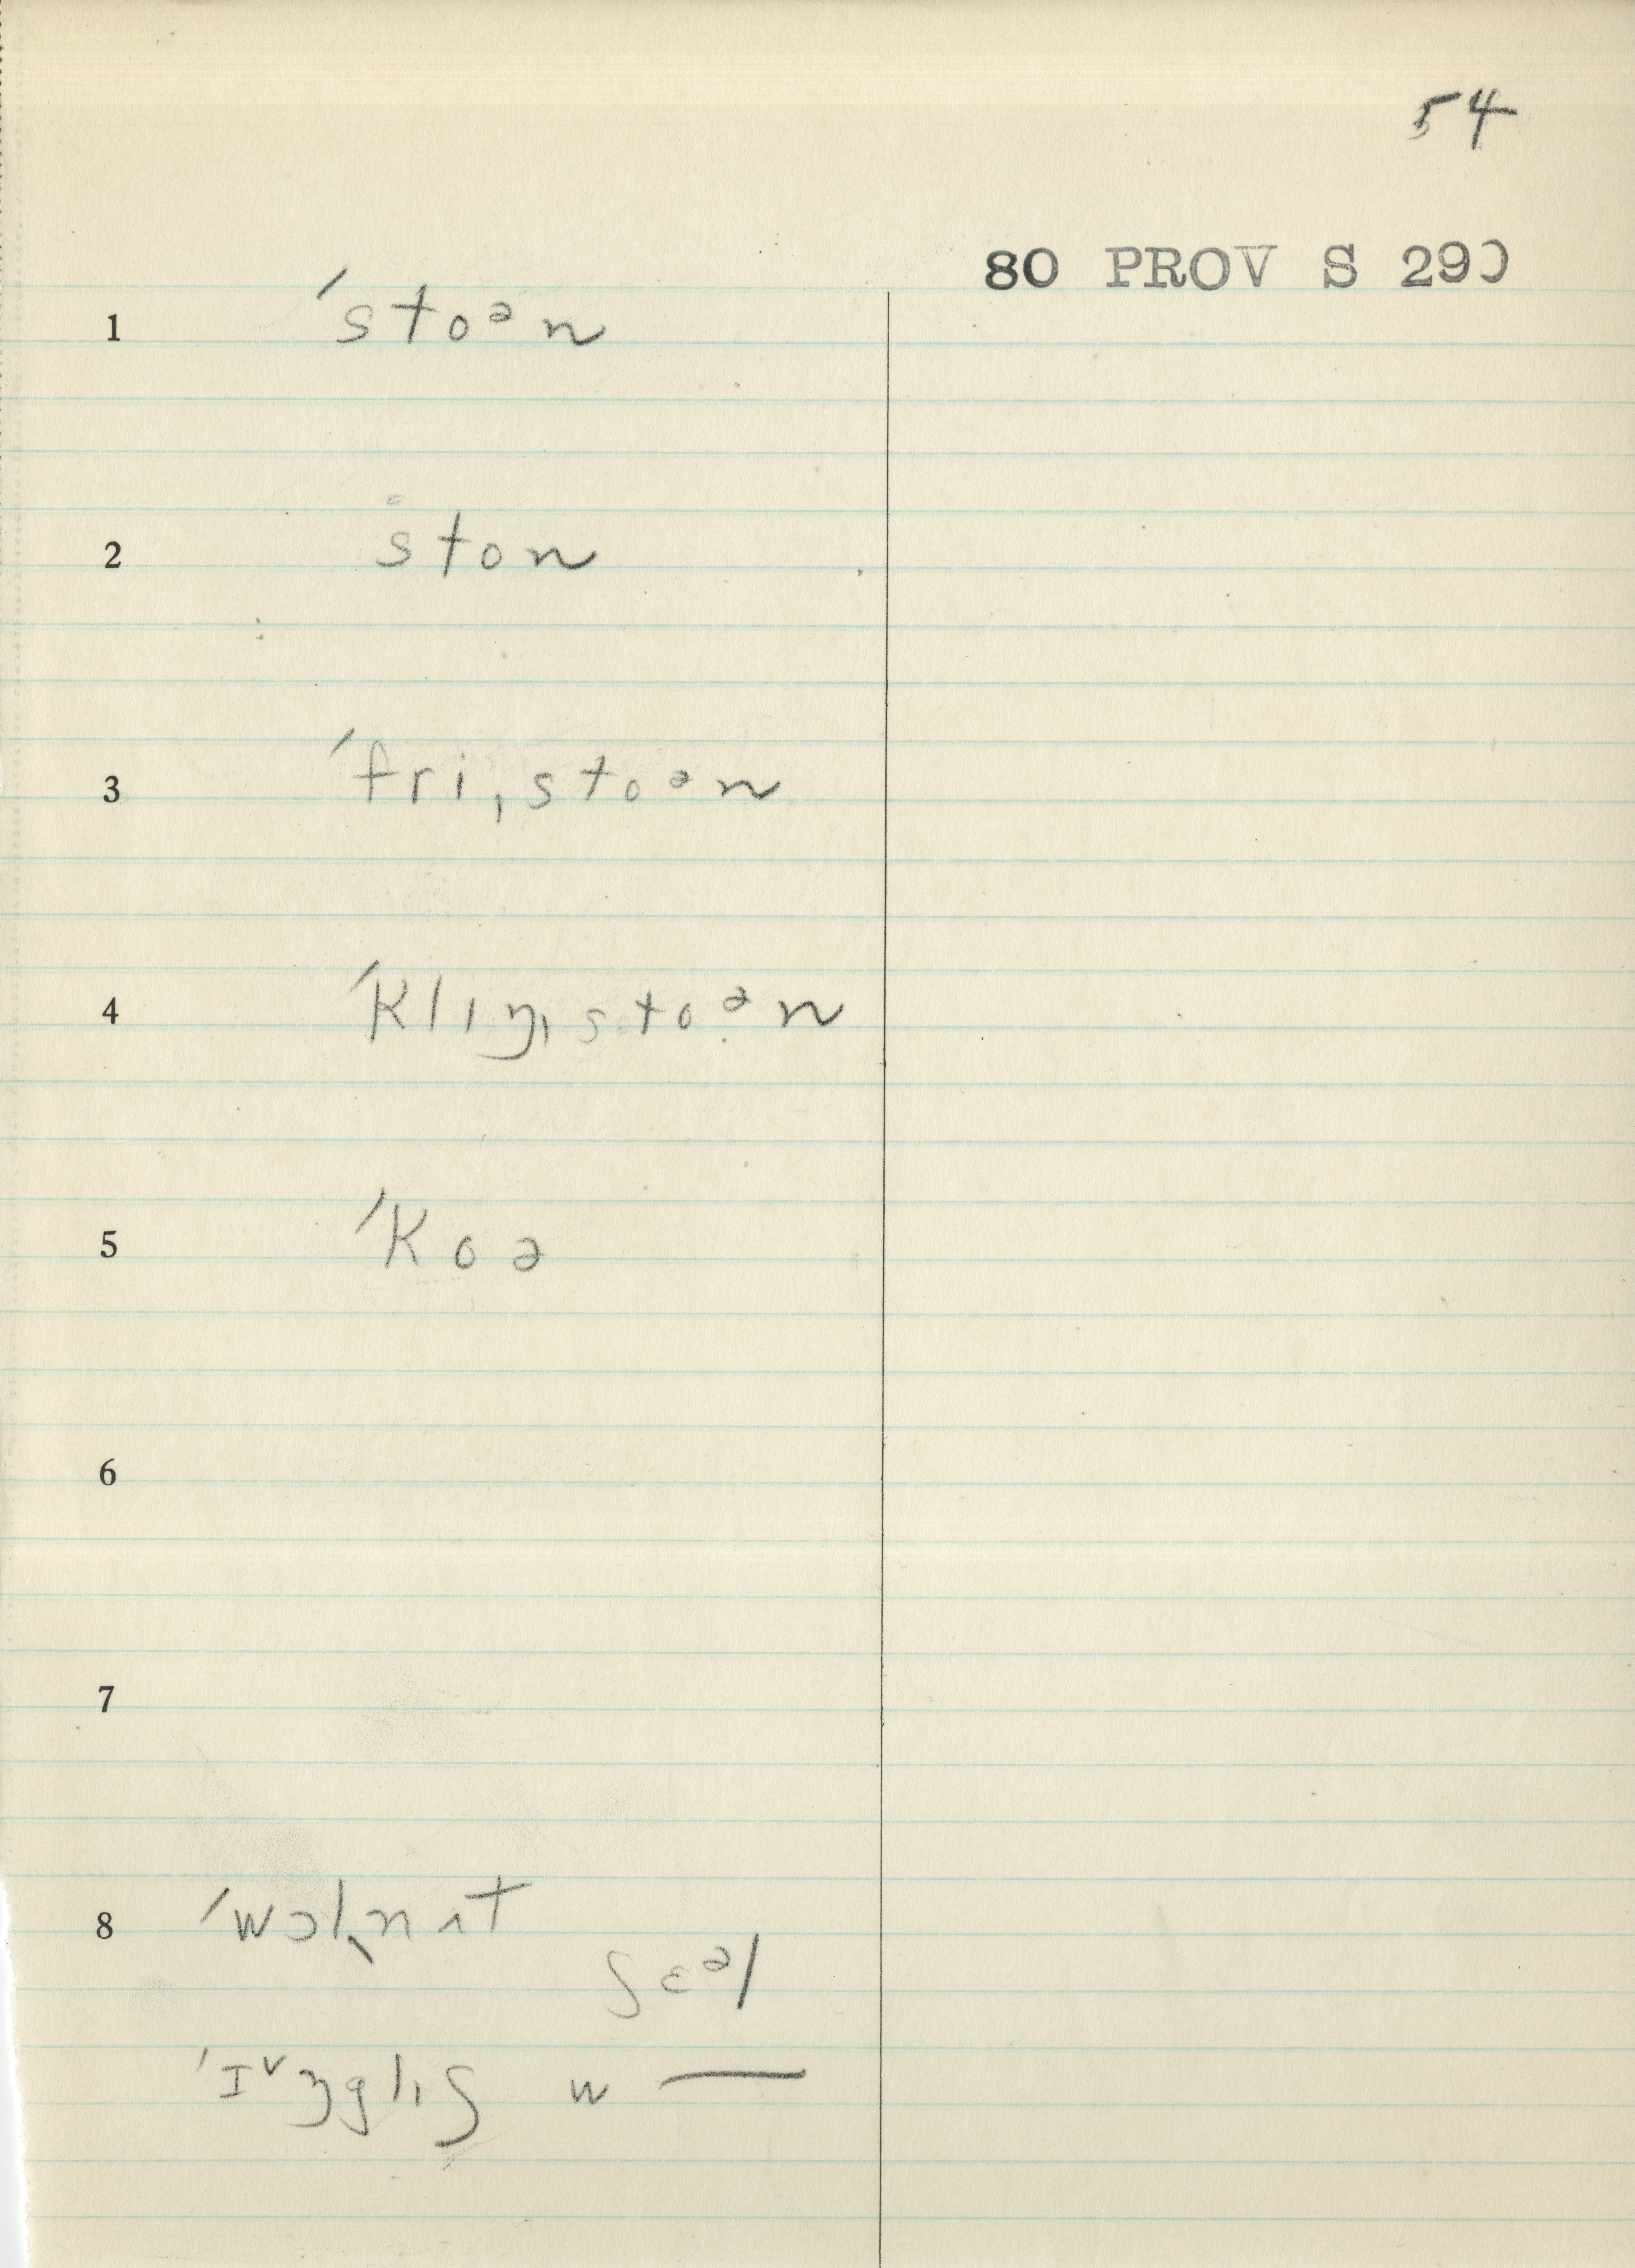 54
80 PROV S 290
1 ˈstoᵊn
2 ston
3 ˈfriˌstoᵊn
4 ˈklɪŋˌstoᵊn
5 ˈkoə
6
7
8 ˈwɔlˌnʌt
ʃɛᵊl
ˈɪ˅ŋglɪʃ w —